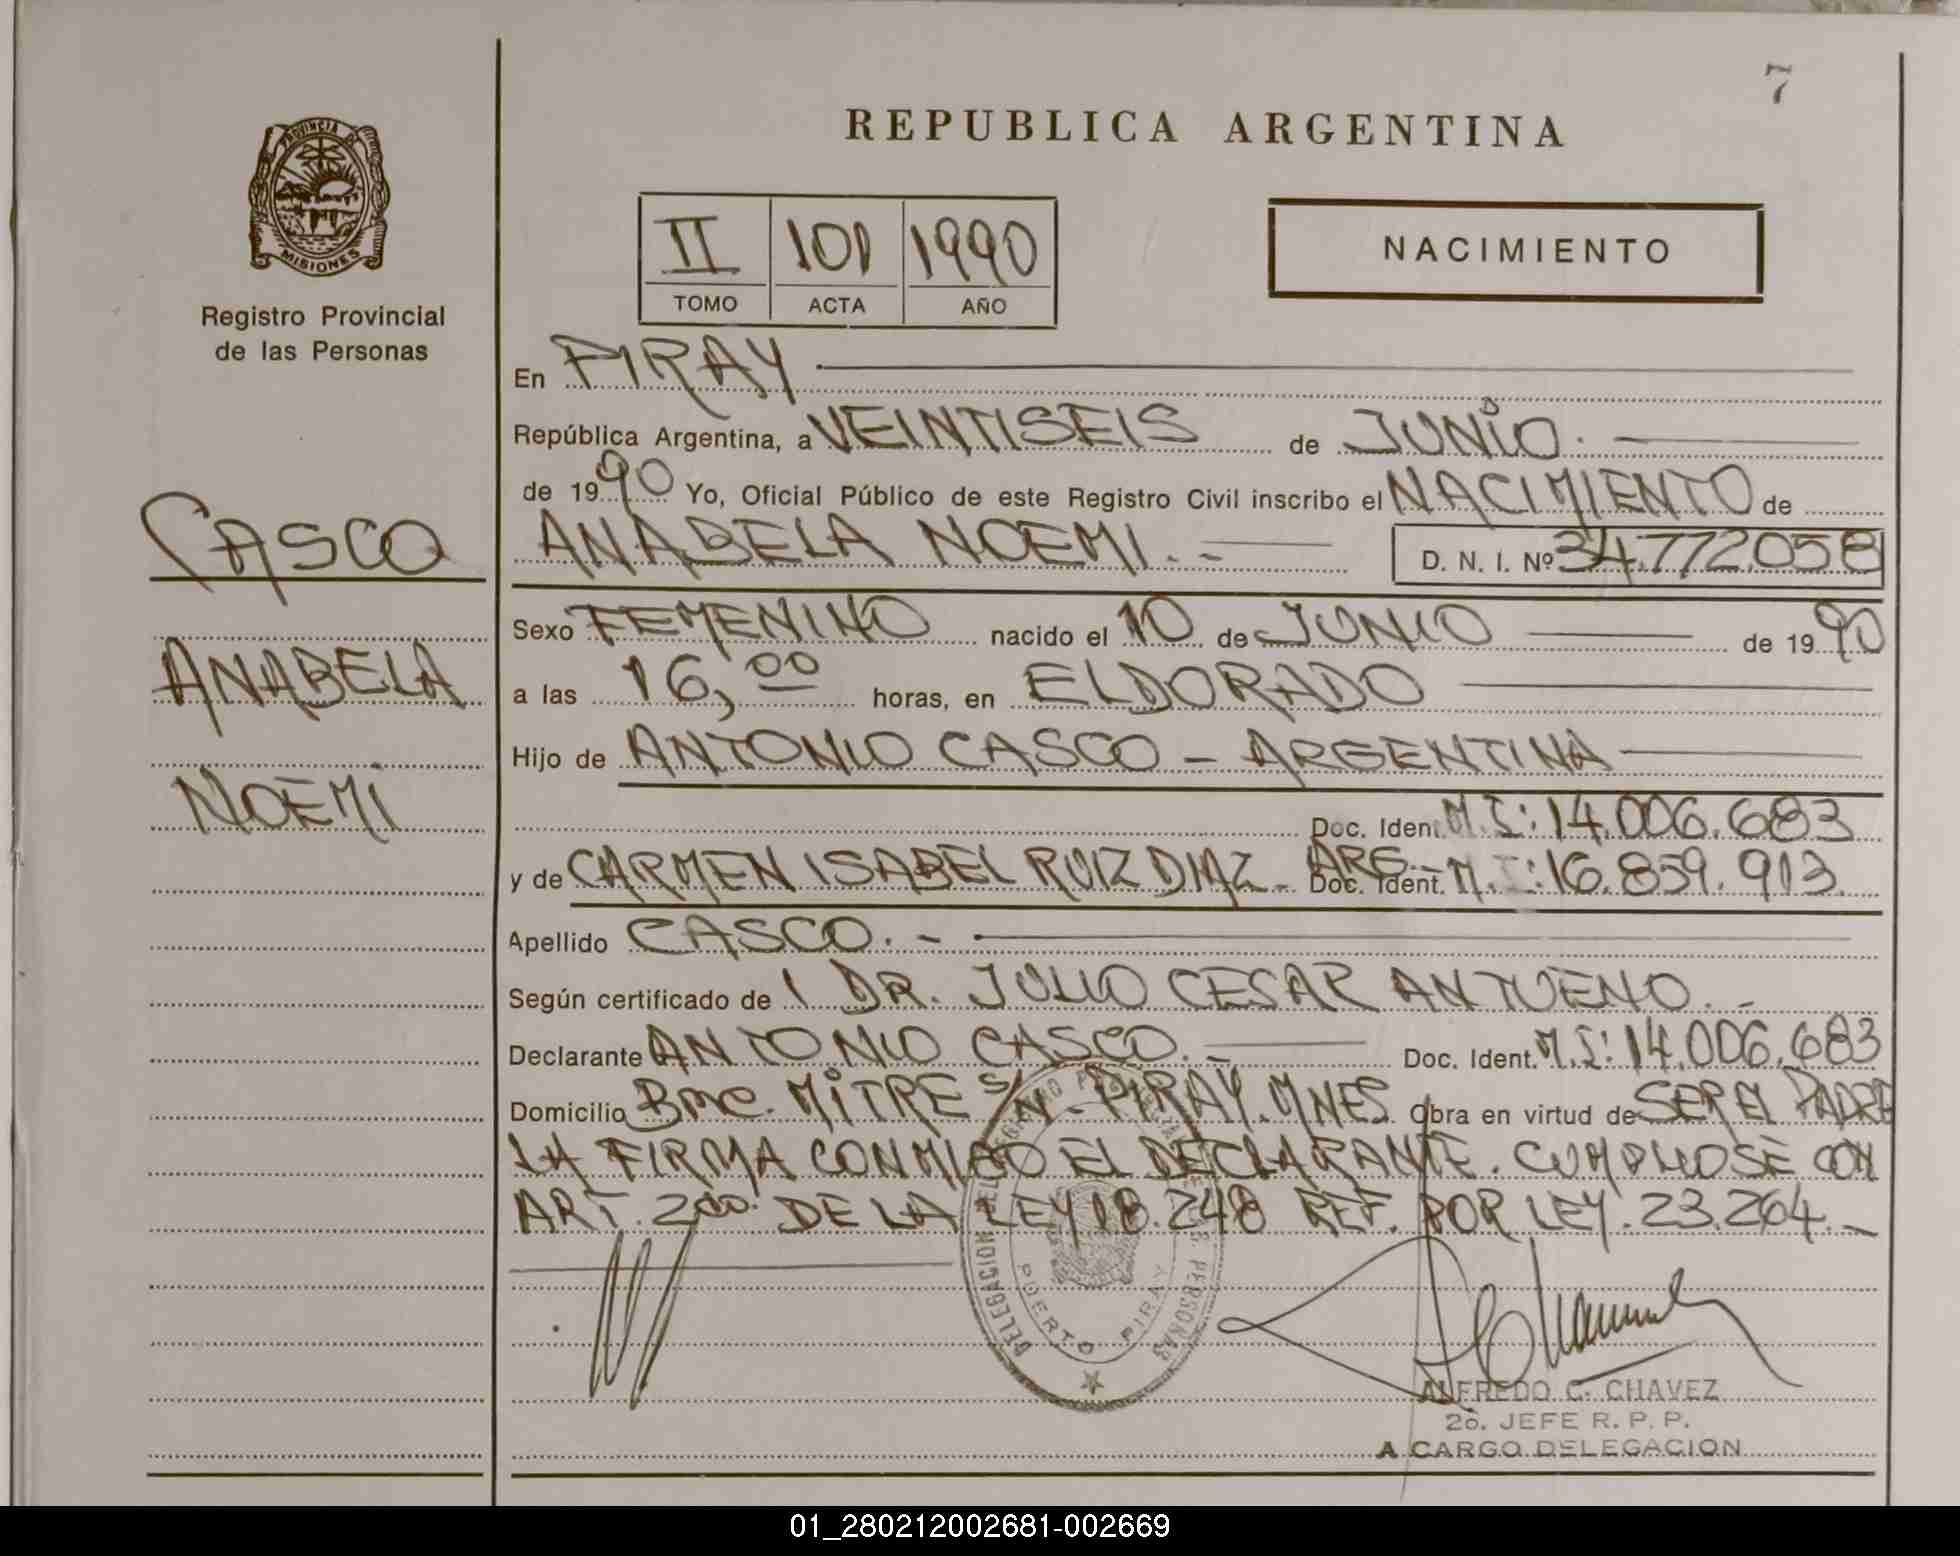 7
REPUBLICA ARGENTINA
PROVINCIA DE
MISIONES
Registro Provincial
de las Personas
II 101 1990
TOMO ACTA AÑO
NACIMIENTO
En PIRAY
República Argentina, a VEINTISEIS de JUNIO.
de 1990 Yo, Oficial Público de este Registro Civil inscribo el NACIMIENTO de
CASCO
ANABELA NOEMI.- D. N. I. Nº 34.772.058
Sexo FEMENINO nacido el 10 de JUNIO de 1990
ANABELA
a las 16,00 horas, en ELDORADO
Hijo de ANTONIO CASCO - ARGENTINA
NOEMI
Doc. Iden. M.I: 14.006.683
y de CARMEN ISABEL RUIZ DIAZ - ARG.- Doc. Ident. M.I: 16.859.913
Apellido CASCO.-
Según certificado de DR. JULIO CESAR ANTUENO.-
Declarante ANTONIO CASCO.- Doc. Ident. M.I: 14.006.683
Domicilio Bme. MITRE S/N - PIRAY. MNES. Obra en virtud de SER EL PADRE
LA FIRMA CONMIGO EL DECLARANTE. CUMPLIOSE CON
ART. 2do. DE LA LEY 18.248 REF. POR LEY. 23.264.-
DELEGACION PERSONAS
PUERTO PIRAY
ALFREDO C. CHAVEZ
2o. JEFE R. P. P.
A CARGO DELEGACION
01_280212002681-002669